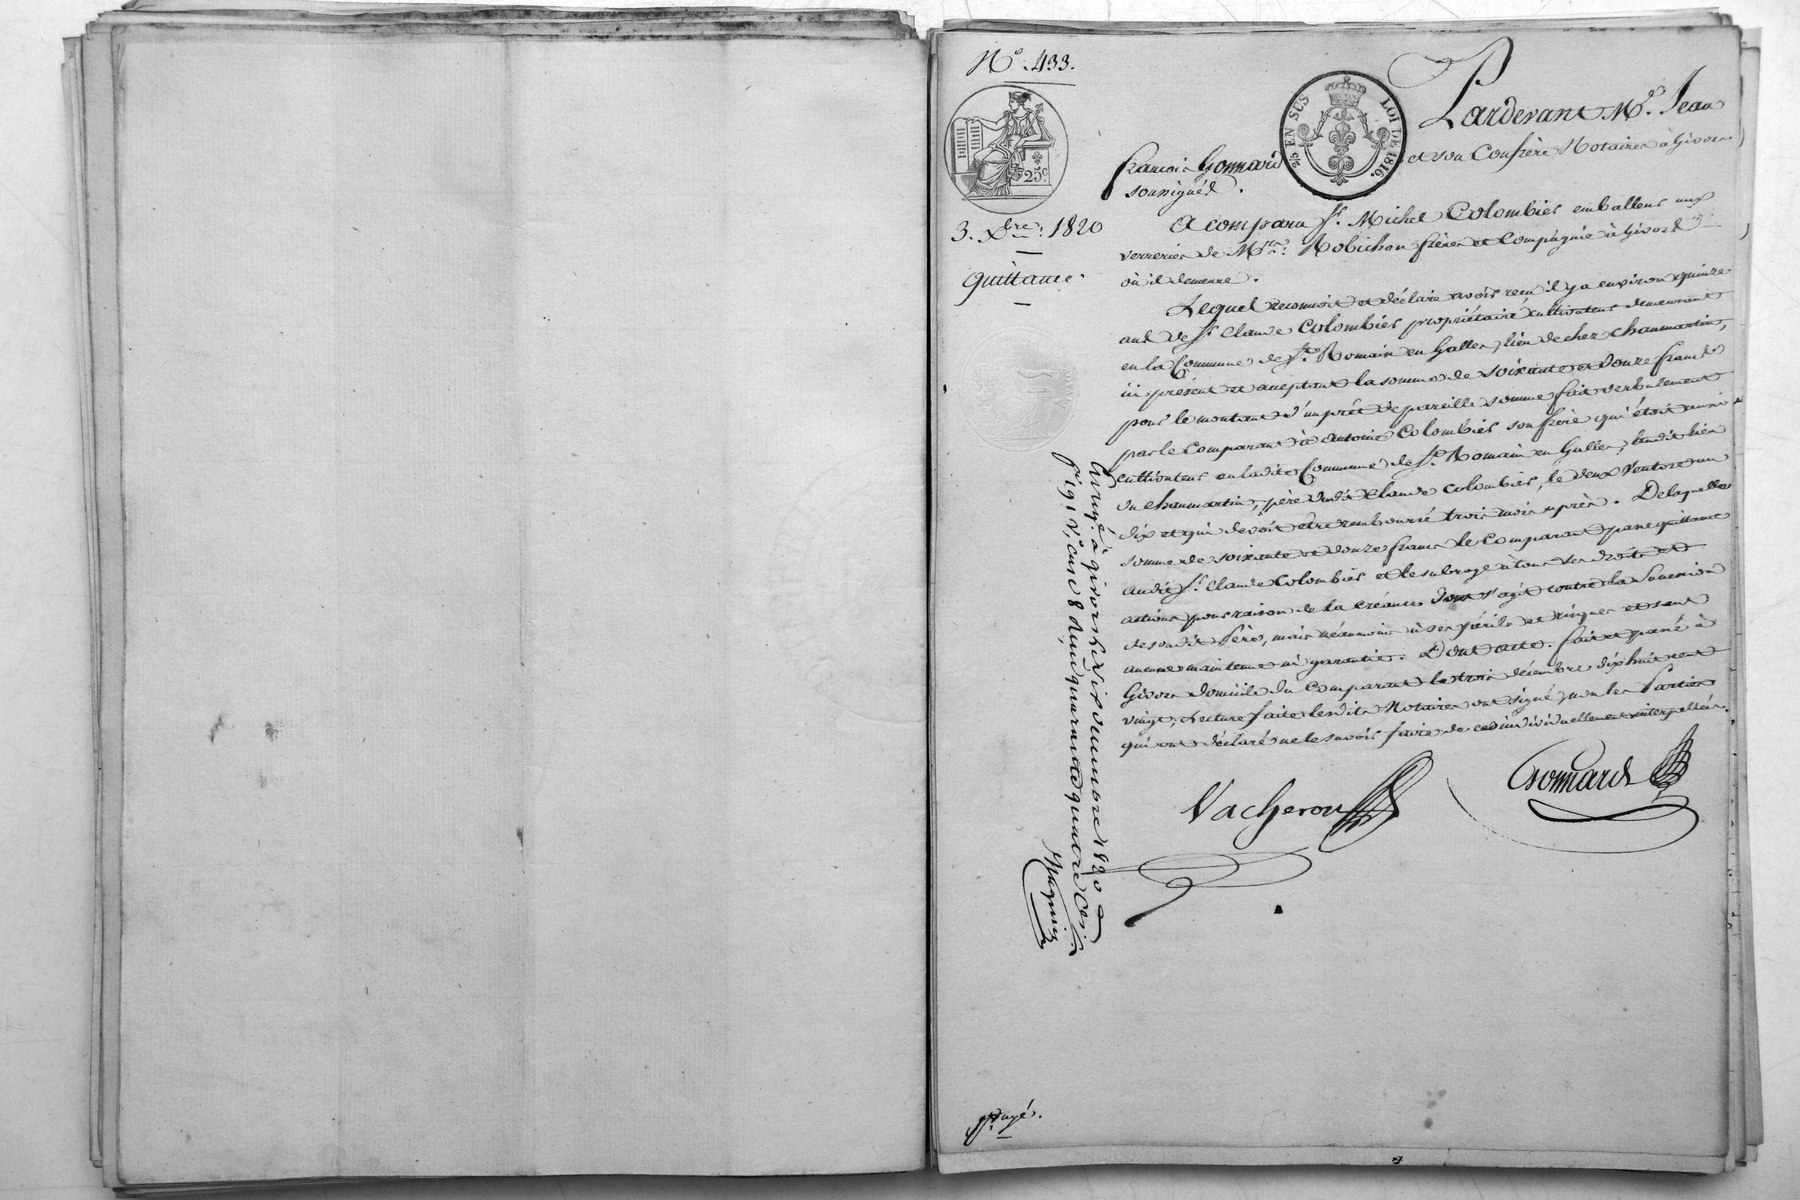 N.o 433.
25c
3. Xbre. 1820
Quittance.
25c EN SUS LOI DE 1816.
Pardevant Me. Jean
francois Gonnard et son Confrère Notaires à Givors
soussignés.
A comparu Sr. Michel Colombier emballeur aux
verreries de Mrs. Robichon frères et Compagnie à Givors
où il demeure.
Lequel reconnoit et déclare avoir recu il y a environ quinze
ans de Sr. Claude Colombier propriétaire cultivateur demeurant
en la Commune de St. Romain en Gallier, lieu de chez Chaumartin,
ici présent et acceptant la somme de soixante et douze francs
pour le montant d'un prêt de pareille somme fait verbalement
par le Comparant à Antoine Colombier son frère qui étoit aussi
cultivateur en ladite Commune de St. Romain en Gallier, susdit lieu
du Chaumartin, père dudit Claude Colombier, le deux Ventose an
dix et qui devoit être remboursé trois mois après. De laquelle
somme de soixante et douze francs le Comparant passe quittance
audit Sr. Claude Colombier et le subroge à tous ses droits et
actions pour raison de la créance dont s'agit contre la Succession
de sondit père, mais néanmoins à ses périls et risques et sans
aucune maintenue ni garantie. Dont acte. fait et passé à
Givors domicile du Comparant le trois décembre dix huit cent
vingt, Lecture faite lesdits Notaires ont signé, non les Parties
qui ont déclaré ne le savoir faire de ce individuellement interpellés.
Vacheron
Gonnard
Enregé. à givors le dix decembre 1820
f° 191 V° case 8 reçu quarante quatre ces.
payé.